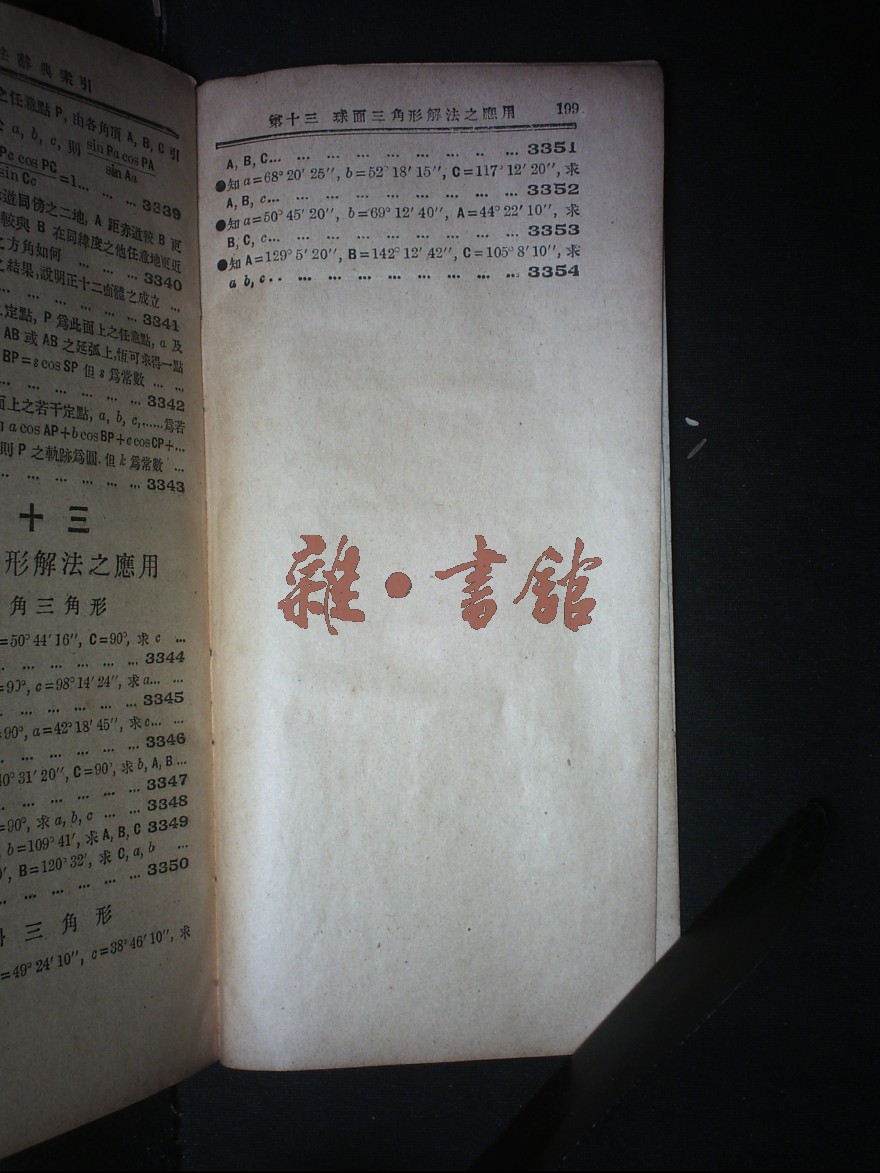 辭典索引
之任意點 P, 由各角頂 A, B, C 引
a, b, c, 則 sin Pa cos PA / sin Aa
Pc cos PC / sin Cc =1... ... 3339
道同傍之二地, A 距赤道較 B 更
較與 B 在同緯度之他任意地更近
之方角如何 ... ... ... 3340
之結果,說明正十二面體之成立 ...
... ... ... ... ... 3341
定點, P 爲此面上之任意點, a 及
AB 或 AB 之延弧上,恆可求得一點
BP=s cos SP 但 s 爲常數 ... ...
... ... ... ... ... 3342
面上之若干定點, a, b, c,......爲若
a cos AP+b cos BP+c cos CP+...
則 P 之軌跡爲圓.但 k 爲常數 ...
... ... ... ... ... 3343
十三
形解法之應用
角三角形
=50°44′16″, C=90°, 求 c ...
... ... ... ... ... 3344
=90°, c=98°14′24″, 求a... ...
... ... ... ... ... 3345
90°, a=42°18′45″, 求c... ...
... ... ... ... ... 3346
40°31′20″, C=90°, 求 b, A, B...
... ... ... ... ... 3347
=90°, 求 a, b, c ... ... 3348
b=109°41′, 求 A, B, C 3349
B=120°32′, 求 C, a, b ...
... ... ... ... ... 3350
三角形
=49°24′10″, c=38°46′10″, 求
第十三 球面三角形解法之應用 199
A, B, C... ... ... ... ... ... ... ... ... 3351
●知 a=68°20′25″, b=52°18′15″, C=117°12′20″, 求
A, B, c... ... ... ... ... ... ... ... ... 3352
●知 a=50°45′20″, b=69°12′40″, A=44°22′10″, 求
B, C, c... ... ... ... ... ... ... ... ... 3353
●知 A=129°5′20″, B=142°12′42″, C=105°8′10″, 求
a, b, c... ... ... ... ... ... ... ... ... 3354
雜·書館